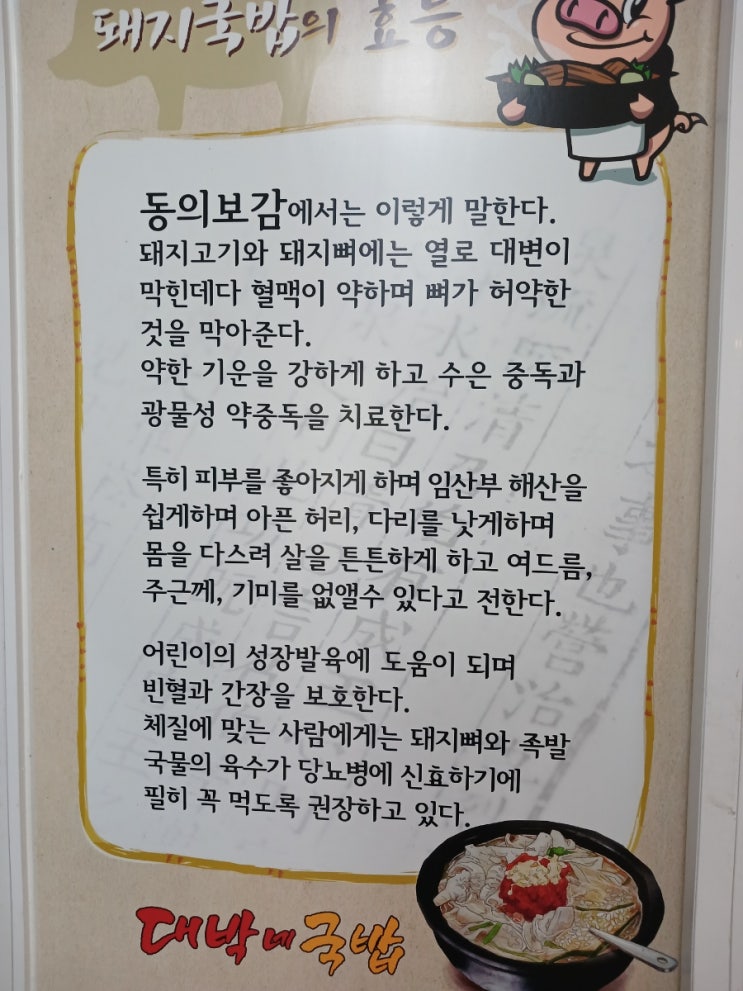 돼지국밥의 효능
동의보감에서는 이렇게 말한다.
돼지고기와 돼지뼈에는 열로 대변이
막힌데다 혈맥이 약하며 뼈가 허약한
것을 막아준다.
약한 기운을 강하게 하고 수은 중독과
광물성 약중독을 치료한다.
특히 피부를 좋아지게 하며 임산부 해산을
쉽게하며 아픈 허리, 다리를 낫게하며
몸을 다스려 살을 튼튼하게 하고 여드름,
주근께, 기미를 없앨수 있다고 전한다.
어린이의 성장발육에 도움이 되며
빈혈과 간장을 보호한다.
체질에 맞는 사람에게는 돼지뼈와 족발
국물의 육수가 당뇨병에 신효하기에
필히 꼭 먹도록 권장하고 있다.
대박네국밥